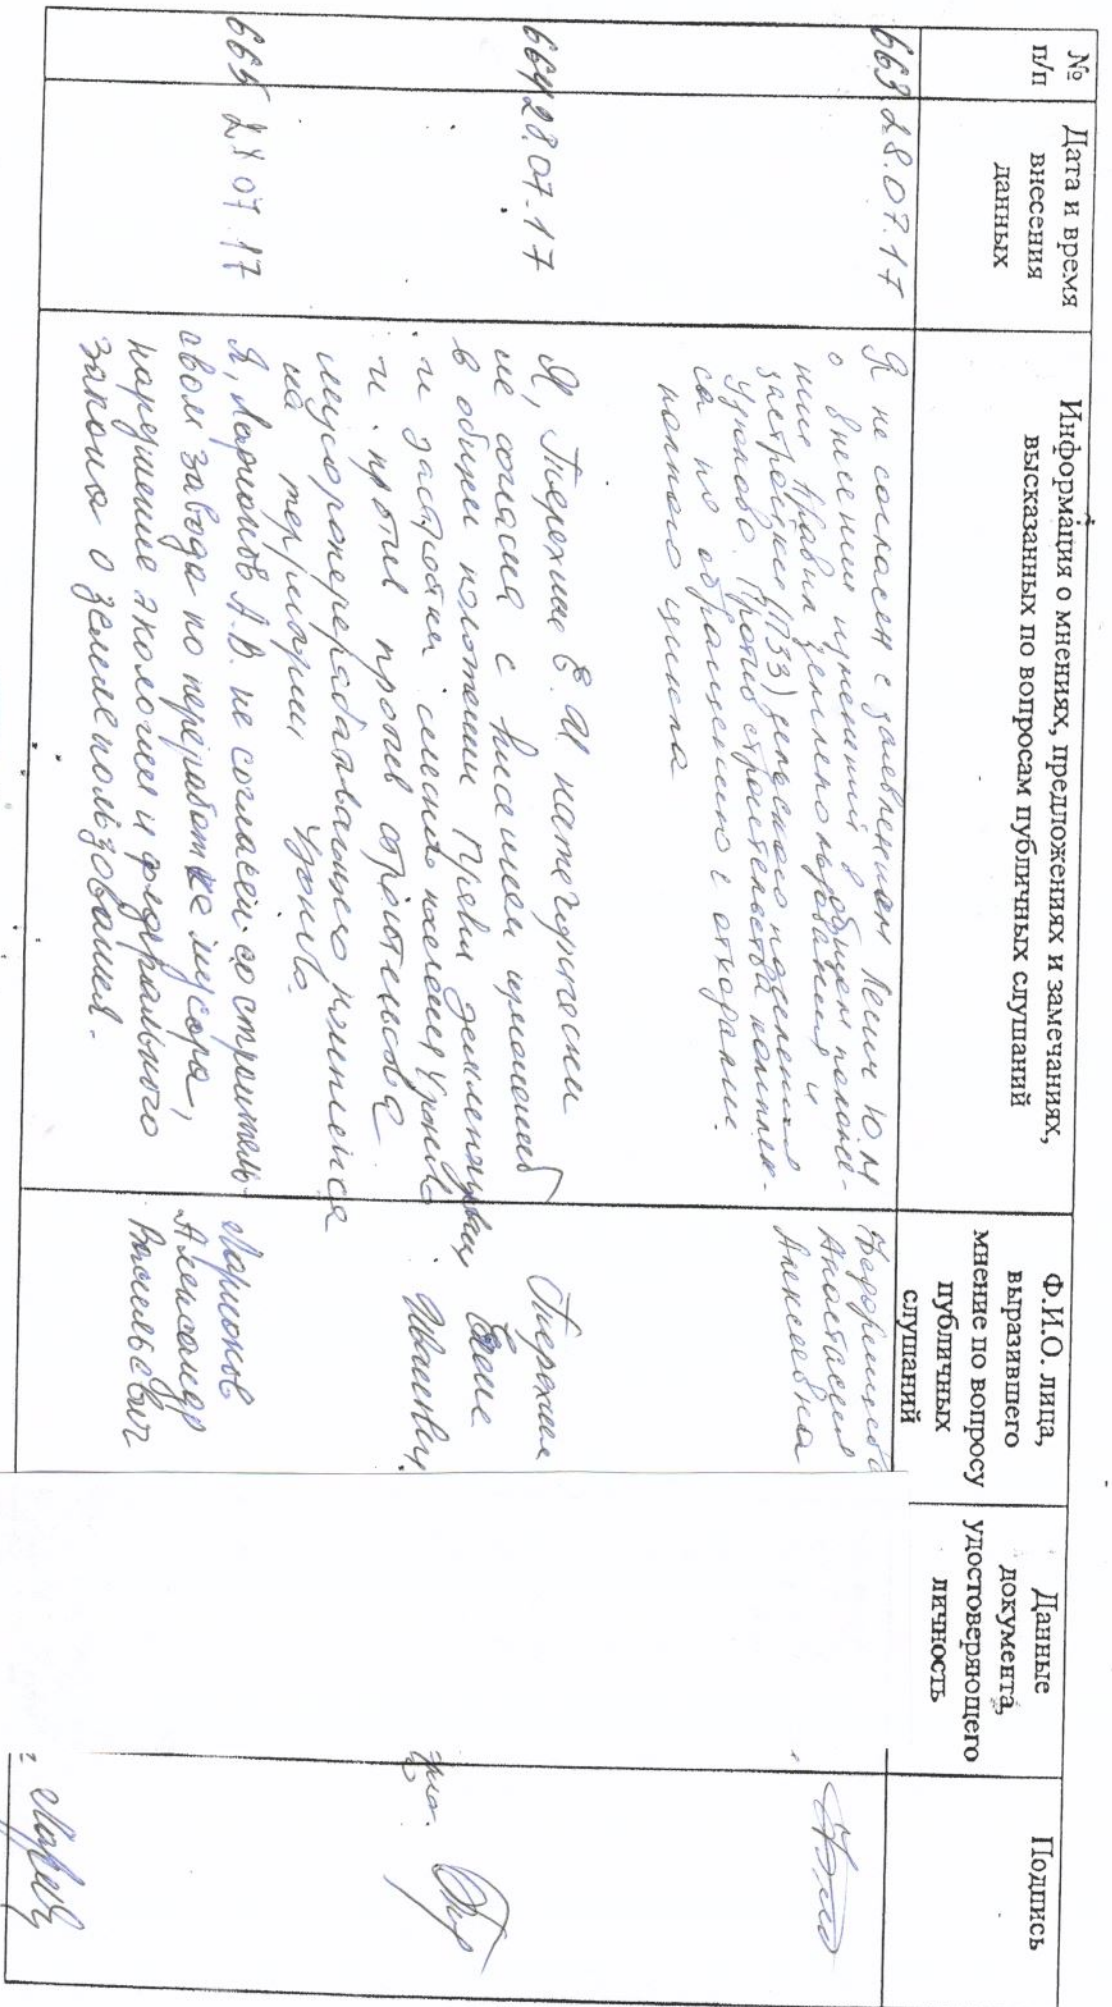 №
п/п
Дата и время
внесения
данных
Информация о мнениях, предложениях и замечаниях,
высказанных по вопросам публичных слушаний
Ф.И.О. лица,
выразившего
мнение по вопросу
публичных
слушаний
Данные
документа,
удостоверяющего
личность
Подпись
663
28.07.17
Я не согласен с заявлением Ю.М
о внесении изменений в общем положе-
ние Правил землепользования и
застройки (ПЗЗ) сельского поселения
Против строительства комплек-
са по обращению с отходами.
полного цикла
Анастасия
Алексеевна
664
28.07.17
Я, Терехин Е.И категорически
не согласна с
в общем положении
и застройки
и против против строительства
мусороперерабатывающего комплекса
на территории
Терехин
Иванович
665
27.07.17
Я, Ларионов А.В. не согласен со строитель-
ством завода по переработке мусора,
нарушение экологии и федерального
закона о землепользовании.
Ларионов
Александр
Васильевич